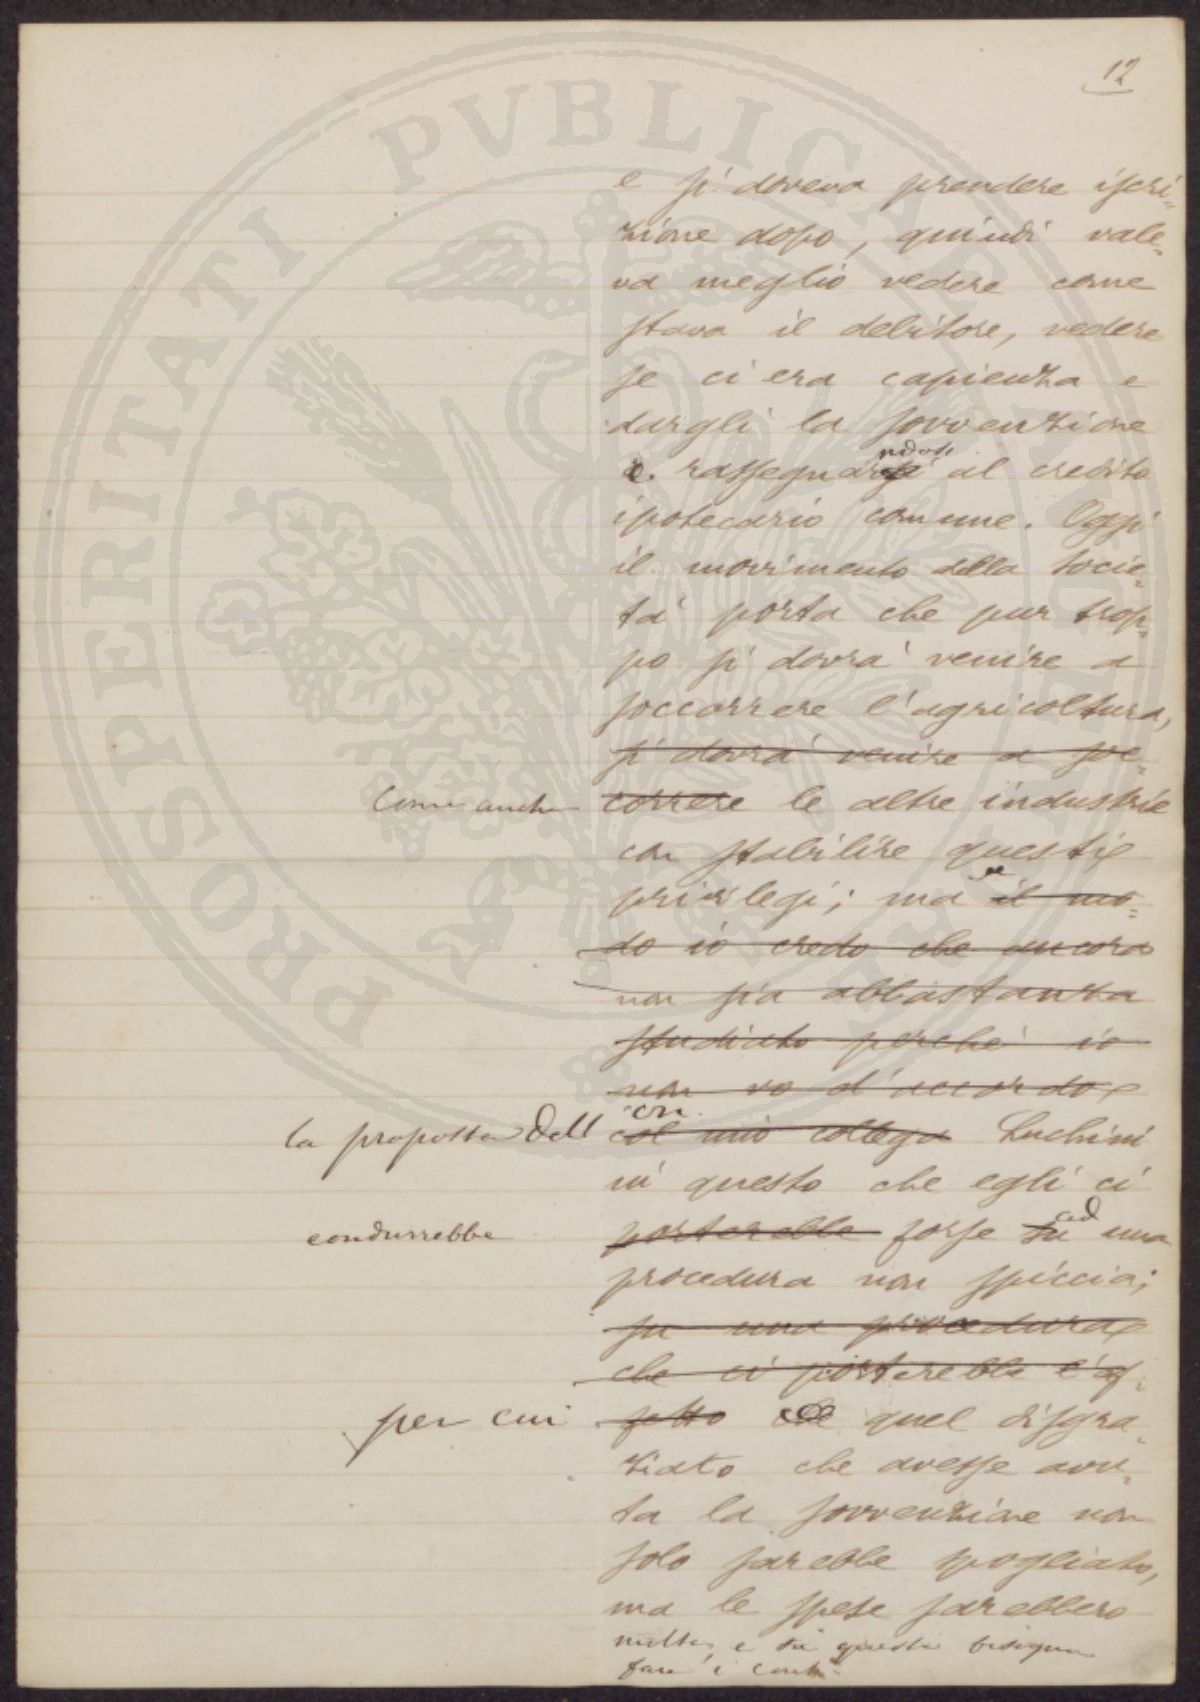 12
e si doveva prendere iscri=
zione dopo, quindi vale=
va meglio vedere come
stava il debitore, vedere
se ci era capienza e
dargli la sovvenzione
ndosi
e rassegnarsi al credito
ipotecario comune. Oggi
il movimento della Socie=
tà porta che pur trop=
po si dovrà venire a
soccorrere l'agricoltura,
si dovrà venire a soc=
come anche correre le altre industrie
con stabilire questi
privilegi; ma il mo=
do io credo che ancora
non sia abbastanza
studiato perchè io
non vo d'accordo
con
la proposta dell col mio collega Luchini
in questo che egli ci
ad
condurrebbe porterebbe forse su una
procedura non spiccia;
su una procedura
che ci porterebbe l'ef=
per cui fetto quel disgra=
ziato che avesse avu=
ta la sovvenzione non
solo sarebbe spogliato,
ma le spese sarebbero
molte, e su questo bisogna
fare i conti.
PROSPERITATI PVBLICAE AVGENDAE